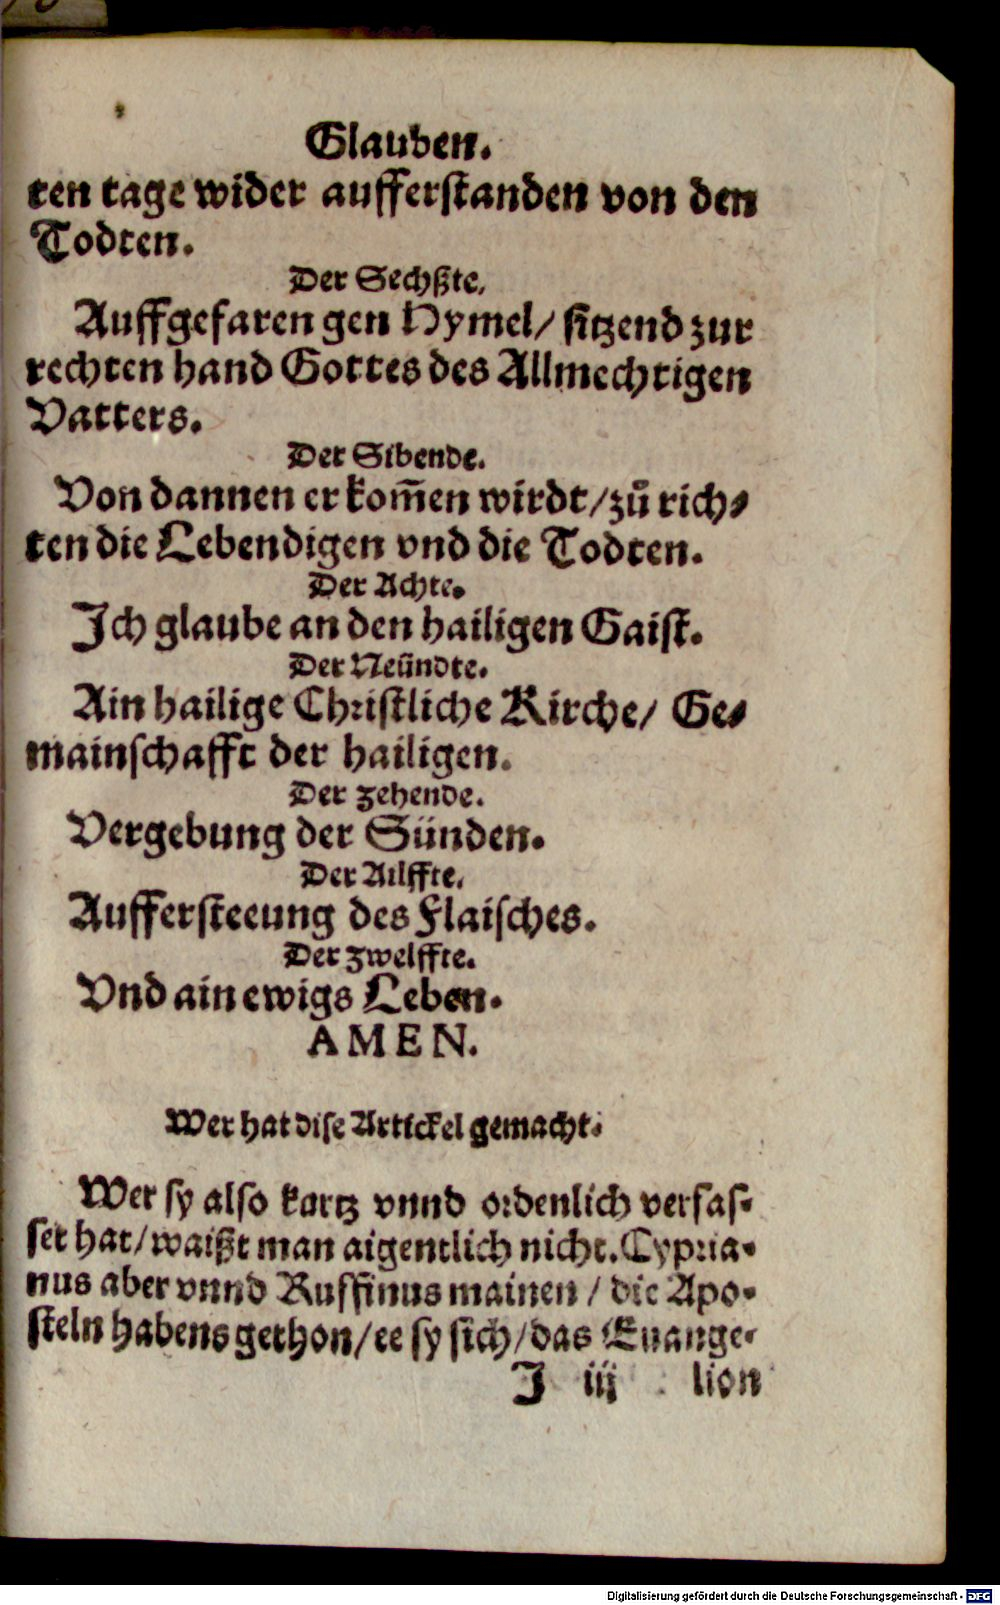 Glauben.
ten tage wider aufferstanden von den
Todten.
Der Sechßte.
Auffgefaren gen Hymel/ sitzend zur
rechten hand Gottes des Allmechtigen
Vatters.
Der Sibende.
Von dannen er kom̃en wirdt/zů rich⸗
ten die Lebendigen vnd die Todten.
Der Achte.
Ich glaube an den hailigen Gaist.
Der Neündte.
Ain hailige Christliche Kirche/ Ge⸗
mainschafft der hailigen.
Der zehende.
Vergebung der Sünden.
Der Ailffte.
Auffersteeung des Flaisches.
Der zwelffte.
Vnd ain ewigs Leben.
AMEN.
Wer hat dise Artickel gemacht.
Wer sy also kurtz vnnd ordenlich verfas⸗
set hat/waißt man aigentlich nicht. Cypria⸗
nus aber vnnd Ruffinus mainen / die Apo⸗
steln habens gethon/ee sy sich/das Euange⸗
J iij lion
Digitalisierung gefördert durch die Deutsche Forschungsgemeinschaft - DFG